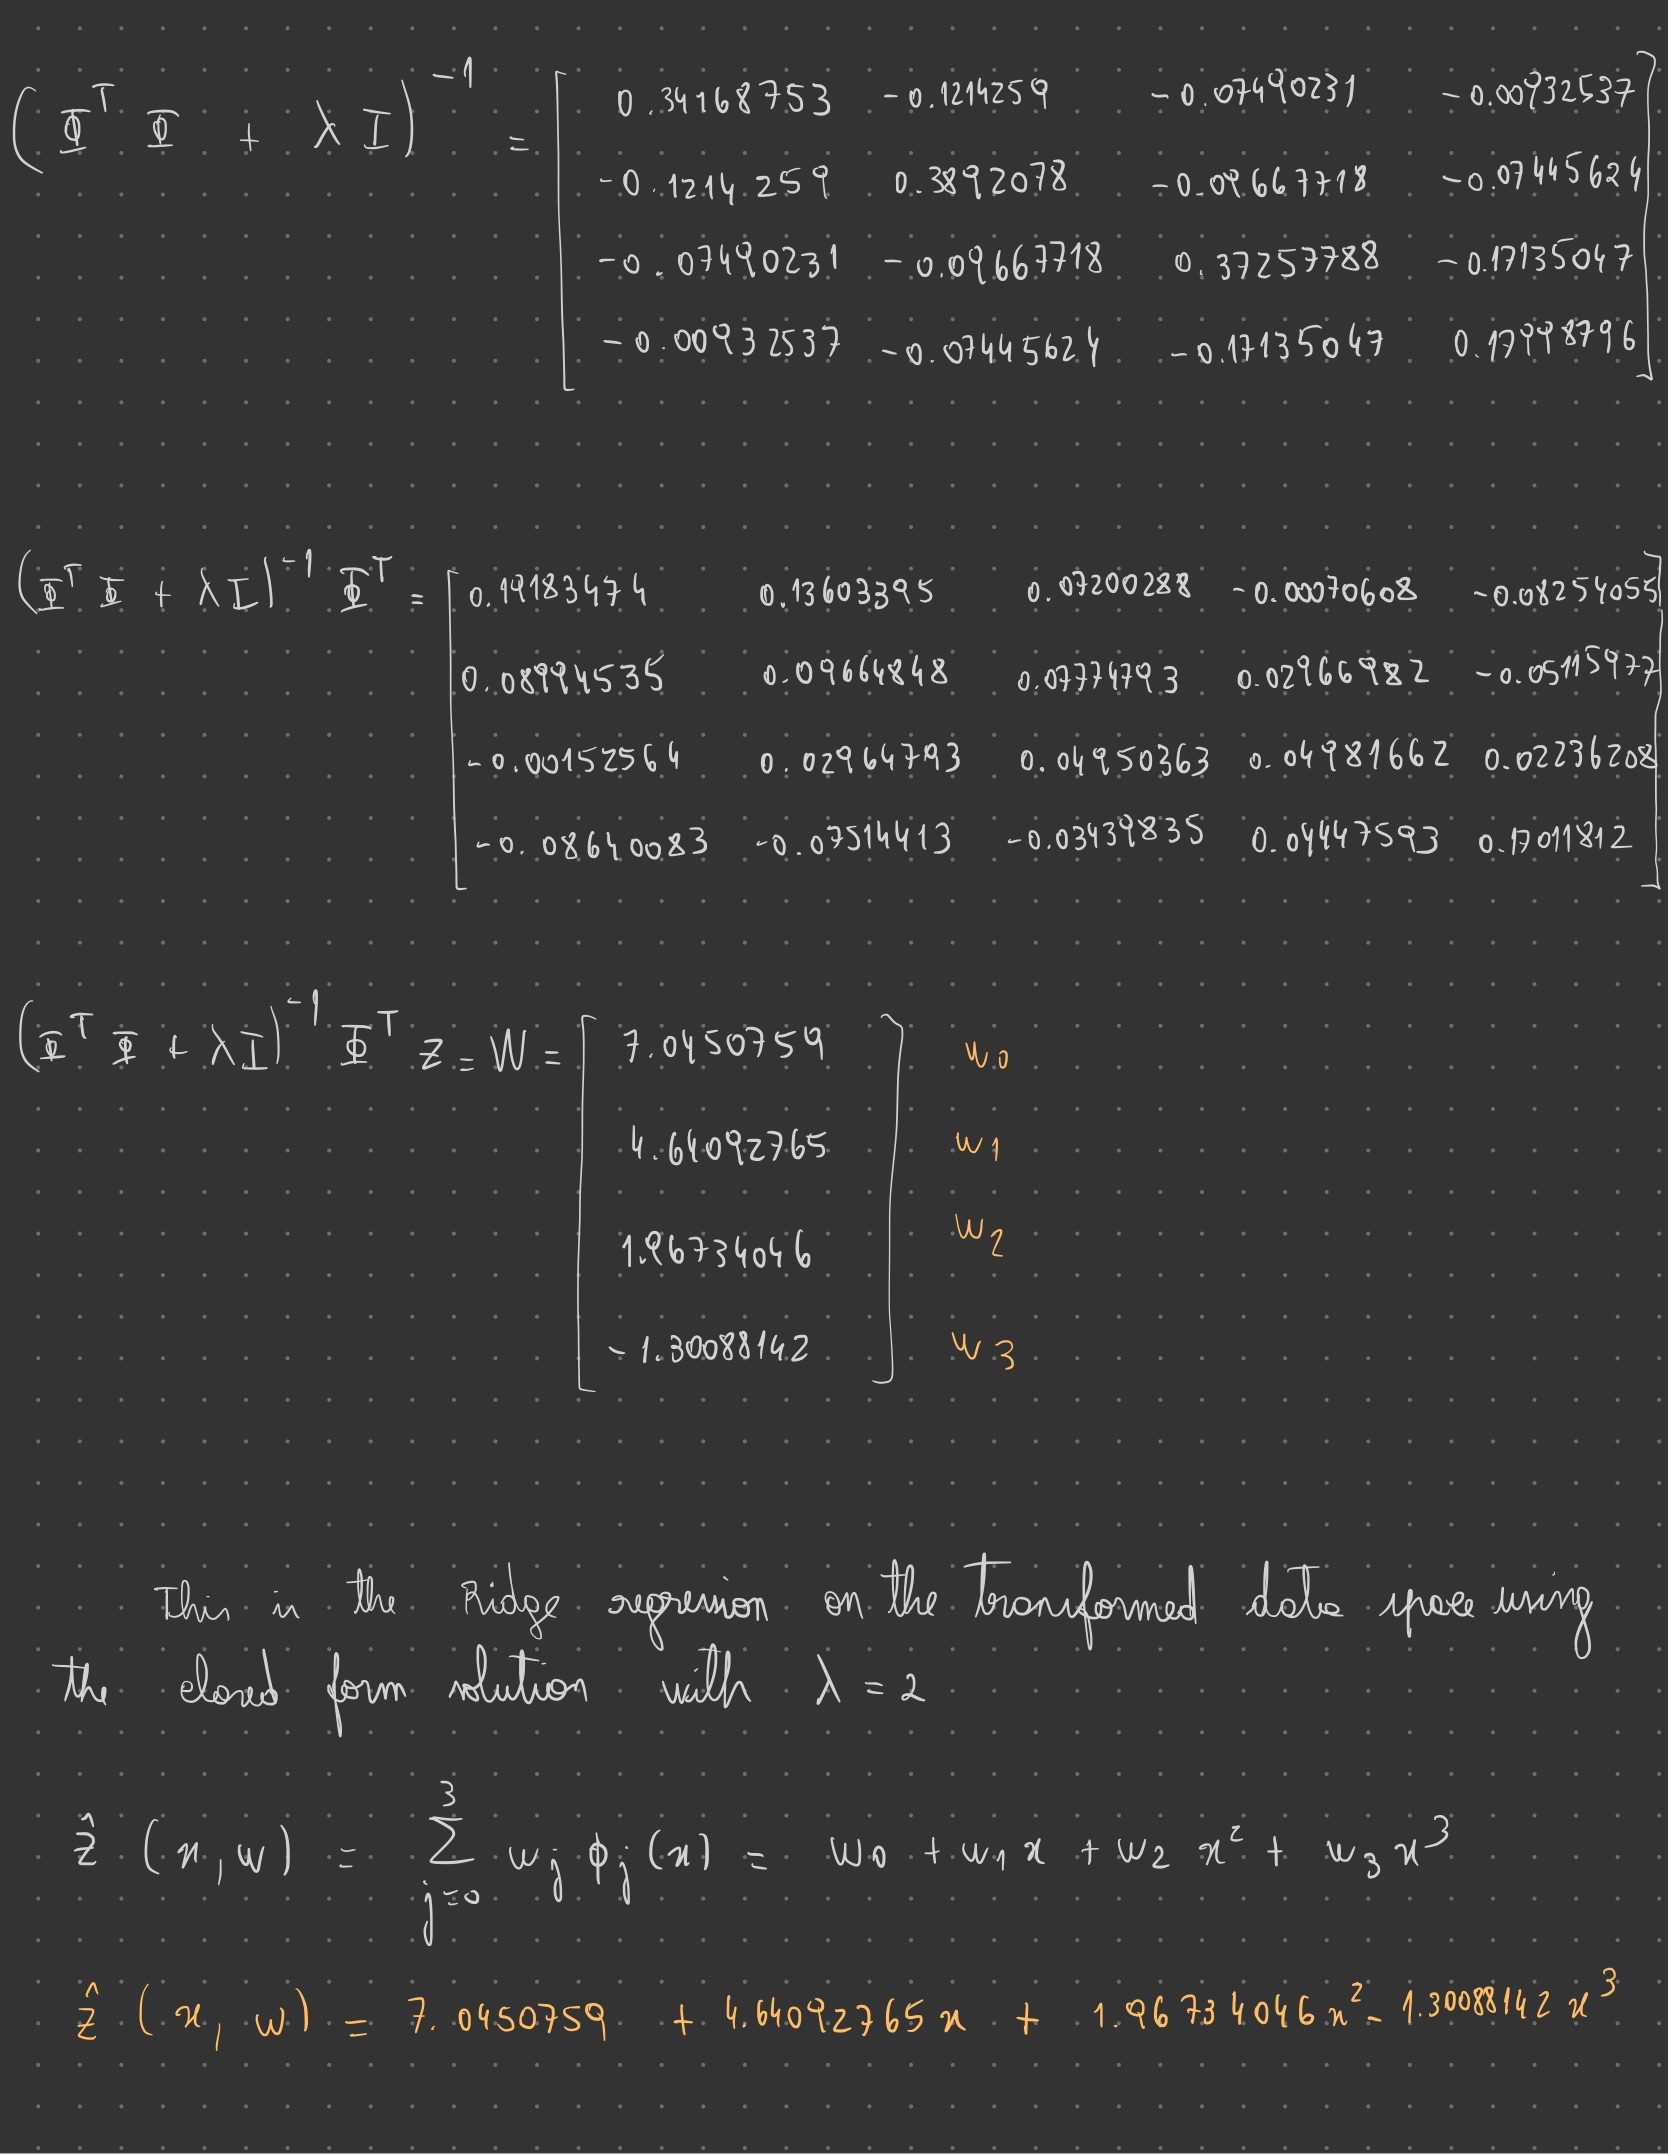 (Φ^T Φ + λ I)^-1 = [
0.34168753 -0.1214259 -0.07490231 -0.00932537
-0.1214259 0.3892078 -0.09667718 -0.07445624
-0.07490231 -0.09667718 0.37257788 -0.17135047
-0.00932537 -0.07445624 -0.17135047 0.17998796 ]
(Φ^T Φ + λ I)^-1 Φ^T = [
0.19183474 0.13603395 0.07200288 -0.00070608 -0.08254055
0.08994535 0.09664848 0.07774793 0.02966982 -0.05115977
-0.00152564 0.02964793 0.04950363 0.04981662 0.02236208
-0.08640083 -0.07514413 -0.03439835 0.04447593 0.17011812 ]
(Φ^T Φ + λ I)^-1 Φ^T z = W = [
7.0450759 w0
4.64092765 w1
1.96734046 w2
-1.30088142 ] w3
This is the Ridge regression on the transformed data space using
the closed form solution with λ = 2
ẑ (x, w) = Σ_{j=0}^{3} w_j ϕ_j (x) = w0 + w1 x + w2 x^2 + w3 x^3
ẑ (x, w) = 7.0450759 + 4.64092765 x + 1.96734046 x^2 - 1.30088142 x^3